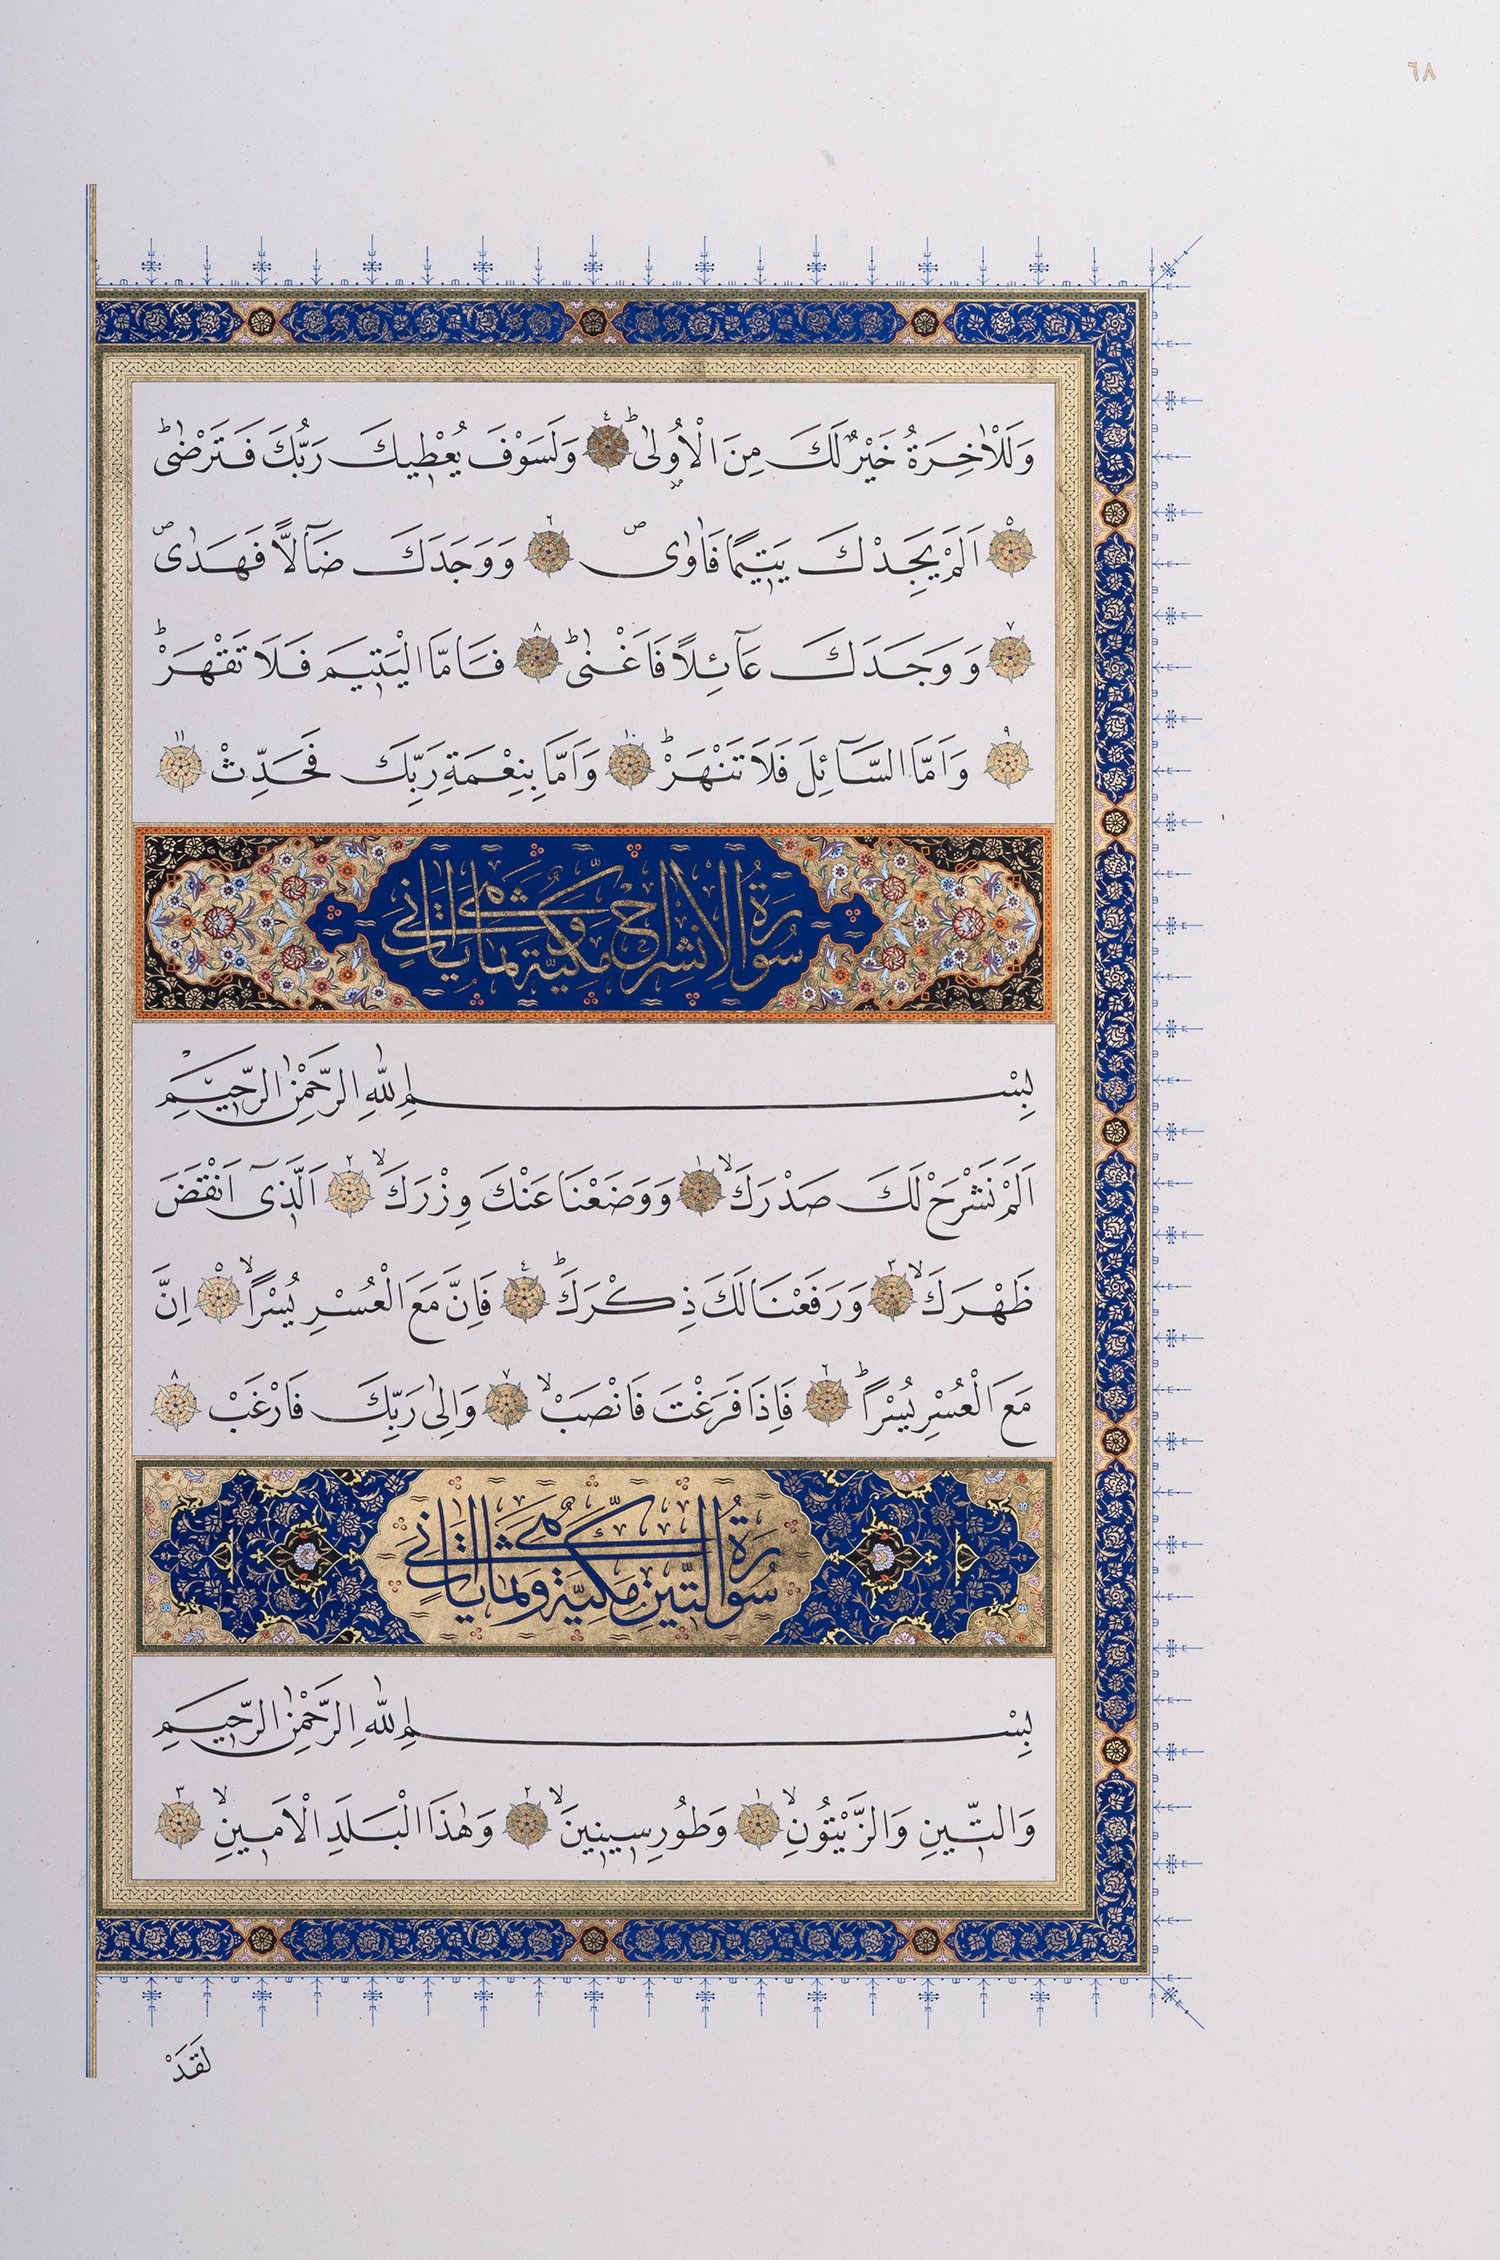 ٦٨
وَلَلْاٰخِرَةُ خَيْرٌ لَكَ مِنَ الْاُو۫لٰىۜ ٤ وَلَسَوْفَ يُعْط۪يكَ رَبُّكَ فَتَرْضٰىۜ
٥ اَلَمْ يَجِدْكَ يَت۪يمًا فَاٰوٰىۖ ٦ وَوَجَدَكَ ضَٓالًّا فَهَدٰىۖ
٧ وَوَجَدَكَ عَٓائِلًا فَاَغْنٰىۜ ٨ فَاَمَّا الْيَت۪يمَ فَلَا تَقْهَرْۜ
٩ وَاَمَّا السَّٓائِلَ فَلَا تَنْهَرْۜ ١٠ وَاَمَّا بِنِعْمَةِ رَبِّكَ فَحَدِّثْ ١١
سُورَةُ الْاِنْشِرَاحِ مَكِّيَّةٌ وَهِيَ ثَمَانِي اٰيَاتٍ
بِسْمِ اللّٰهِ الرَّحْمٰنِ الرَّح۪يمِ
اَلَمْ نَشْرَحْ لَكَ صَدْرَكَۙ ١ وَوَضَعْنَا عَنْكَ وِزْرَكَۙ ٢ اَلَّذ۪ٓى اَنْقَضَ
ظَهْرَكَۙ ٣ وَرَفَعْنَا لَكَ ذِكْرَكَۜ ٤ فَاِنَّ مَعَ الْعُسْرِ يُسْرًاۙ ٥ اِنَّ
مَعَ الْعُسْرِ يُسْرًاۜ ٦ فَاِذَا فَرَغْتَ فَانْصَبْۙ ٧ وَاِلٰى رَبِّكَ فَارْغَبْ ٨
سُورَةُ التّ۪ينِ مَكِّيَّةٌ وَهِيَ ثَمَانِي اٰيَاتٍ
بِسْمِ اللّٰهِ الرَّحْمٰنِ الرَّح۪يمِ
وَالتّ۪ينِ وَالزَّيْتُونِۙ ١ وَطُورِ س۪ين۪ينَۙ ٢ وَهٰذَا الْبَلَدِ الْاَم۪ينِۙ ٣
لَقَدْ